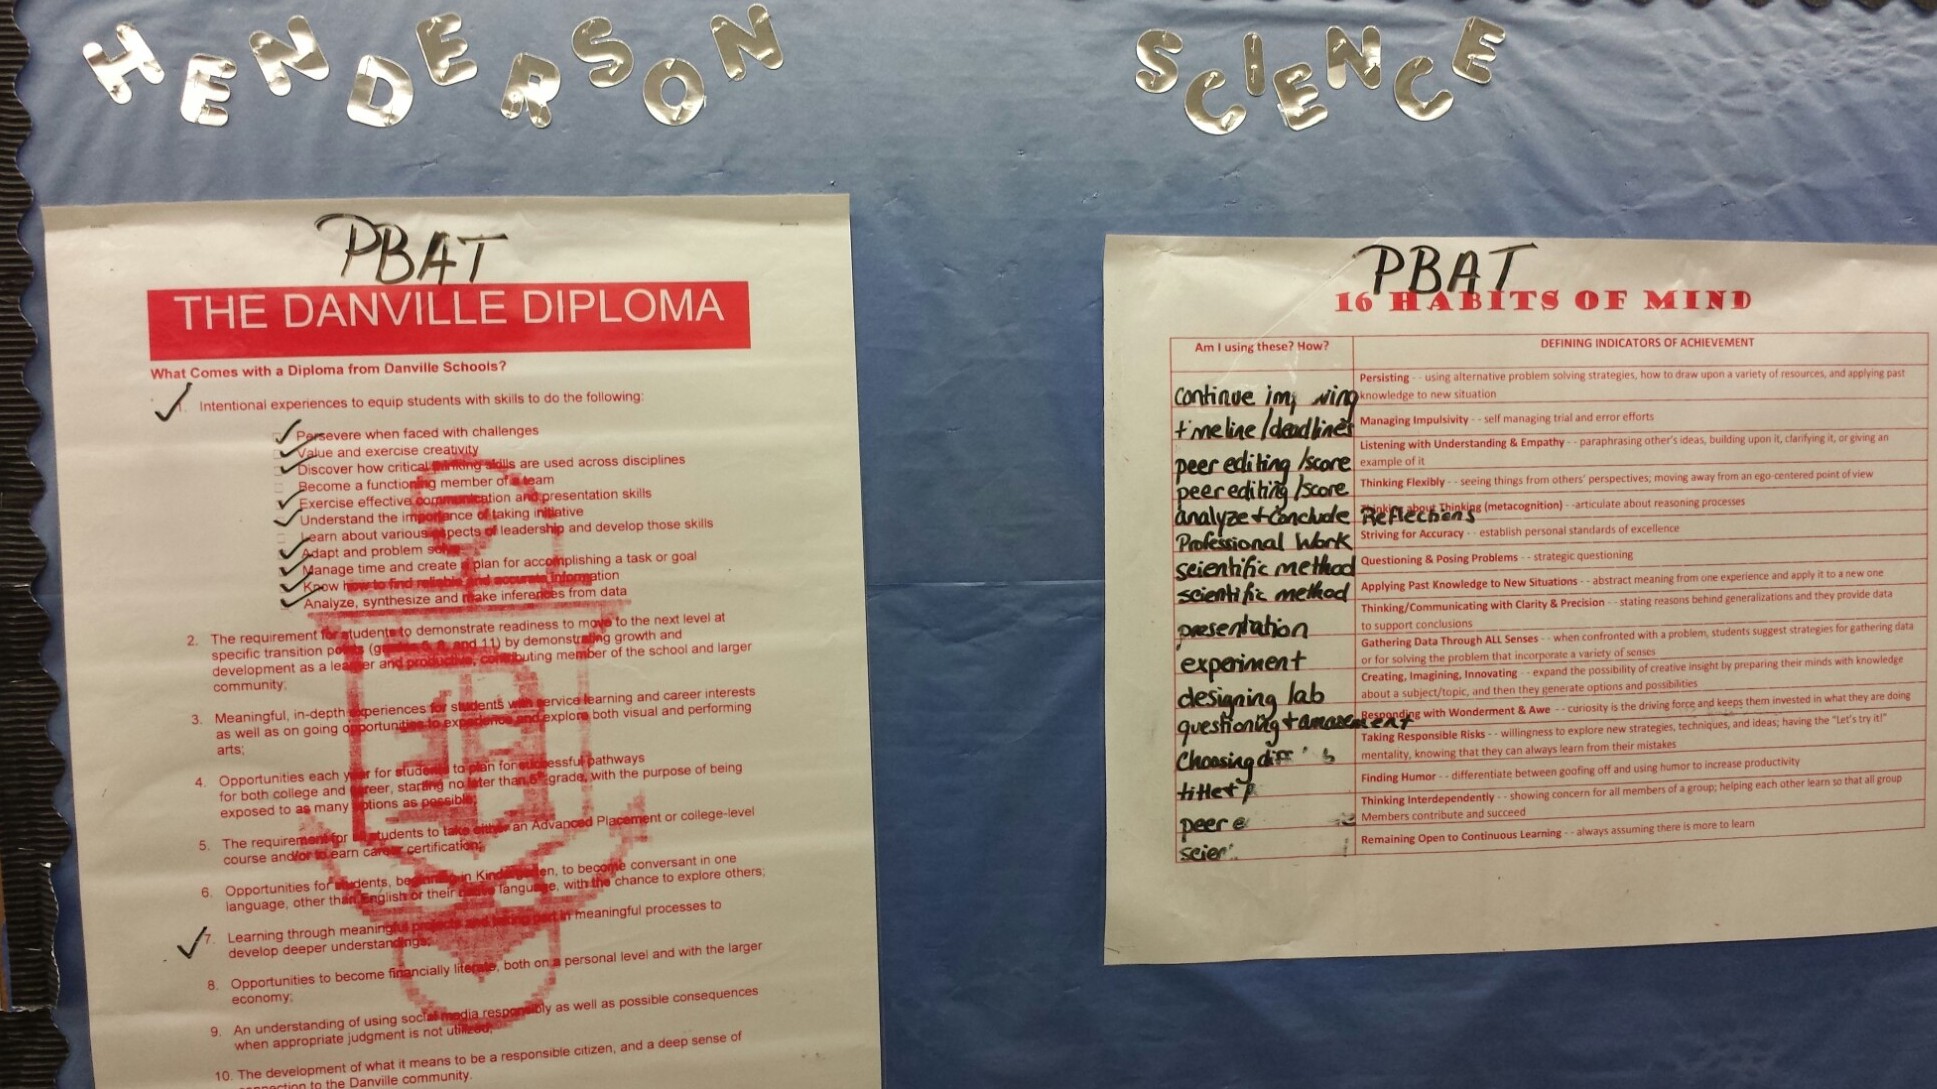 HENDERSON
SCIENCE
PBAT
THE DANVILLE DIPLOMA
What Comes with a Diploma from Danville Schools?
1. Intentional experiences to equip students with skills to do the following:
Persevere when faced with challenges
Value and exercise creativity
Discover how critical thinking skills are used across disciplines
Become a functioning member of a team
Exercise effective communication and presentation skills
Understand the importance of taking initiative
Learn about various aspects of leadership and develop those skills
Adapt and problem solve
Manage time and create a plan for accomplishing a task or goal
Know how to find reliable and accurate information
Analyze, synthesize and make inferences from data
2. The requirement for students to demonstrate readiness to move to the next level at
specific transition points (grades 5, 8, and 11) by demonstrating growth and
development as a learner and productive, contributing member of the school and larger
community;
3. Meaningful, in-depth experiences for students with service learning and career interests
as well as on going opportunities to experience and explore both visual and performing
arts;
4. Opportunities each year for students to plan for successful pathways
for both college and career, starting no later than 6th grade, with the purpose of being
exposed to as many options as possible;
5. The requirement for all students to take either an Advanced Placement or college-level
course and/or to earn career certification;
6. Opportunities for students, beginning in Kindergarten, to become conversant in one
language, other than English or their native language, with the chance to explore others;
7. Learning through meaningful projects and taking part in meaningful processes to
develop deeper understandings;
8. Opportunities to become financially literate, both on a personal level and with the larger
economy;
9. An understanding of using social media responsibly as well as possible consequences
when appropriate judgment is not utilized;
10. The development of what it means to be a responsible citizen, and a deep sense of
connection to the Danville community.
PBAT
16 HABITS OF MIND
Am I using these? How?
DEFINING INDICATORS OF ACHIEVEMENT
continue
Persisting - - using alternative problem solving strategies, how to draw upon a variety of resources, and applying past
knowledge to new situation
timeline/deadlines
Managing Impulsivity - - self managing trial and error efforts
peer editing/score
Listening with Understanding & Empathy - - paraphrasing other's ideas, building upon it, clarifying it, or giving an
example of it
peer editing/score
Thinking Flexibly - - seeing things from others' perspectives; moving away from an ego-centered point of view
analyze + conclude Reflections
Thinking about Thinking (metacognition) - -articulate about reasoning processes
Professional Work
Striving for Accuracy - - establish personal standards of excellence
scientific method
Questioning & Posing Problems - - strategic questioning
scientific method
Applying Past Knowledge to New Situations - - abstract meaning from one experience and apply it to a new one
presentation
Thinking/Communicating with Clarity & Precision - - stating reasons behind generalizations and they provide data
to support conclusions
experiment
Gathering Data Through ALL Senses - - when confronted with a problem, students suggest strategies for gathering data
or for solving the problem that incorporate a variety of senses
designing lab
Creating, Imagining, Innovating - - expand the possibility of creative insight by preparing their minds with knowledge
about a subject/topic, and then they generate options and possibilities
questioning + amasement
Responding with Wonderment & Awe - - curiosity is the driving force and keeps them invested in what they are doing
Choosing
Taking Responsible Risks - - willingness to explore new strategies, techniques, and ideas; having the "Let's try it!"
mentality, knowing that they can always learn from their mistakes
Finding Humor - - differentiate between goofing off and using humor to increase productivity
peer
Thinking Interdependently - - showing concern for all members of a group; helping each other learn so that all group
Members contribute and succeed
Remaining Open to Continuous Learning - - always assuming there is more to learn